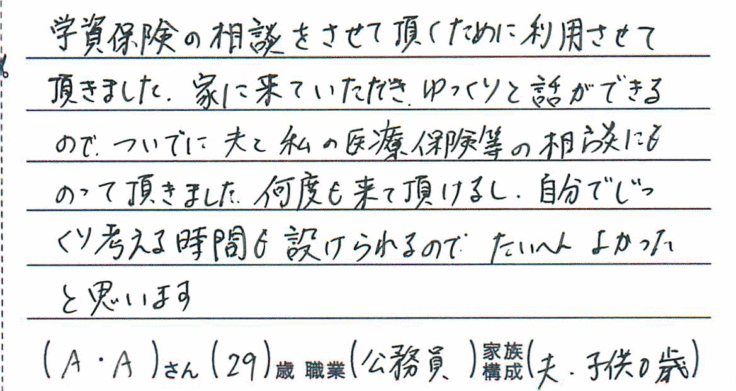 学資保険の相談をさせて頂くために利用させて
頂きました、家に来ていただき、ゆっくりと話ができる
ので、ついでに夫と私の医療保険等の相談にも
のって頂きました、何度も来て頂けるし、自分でじっ
くり考える時間も設けられるので たいへん よかった
と思います
(A・A)さん(29)歳 職業(公務員)家族構成(夫・子供0歳)